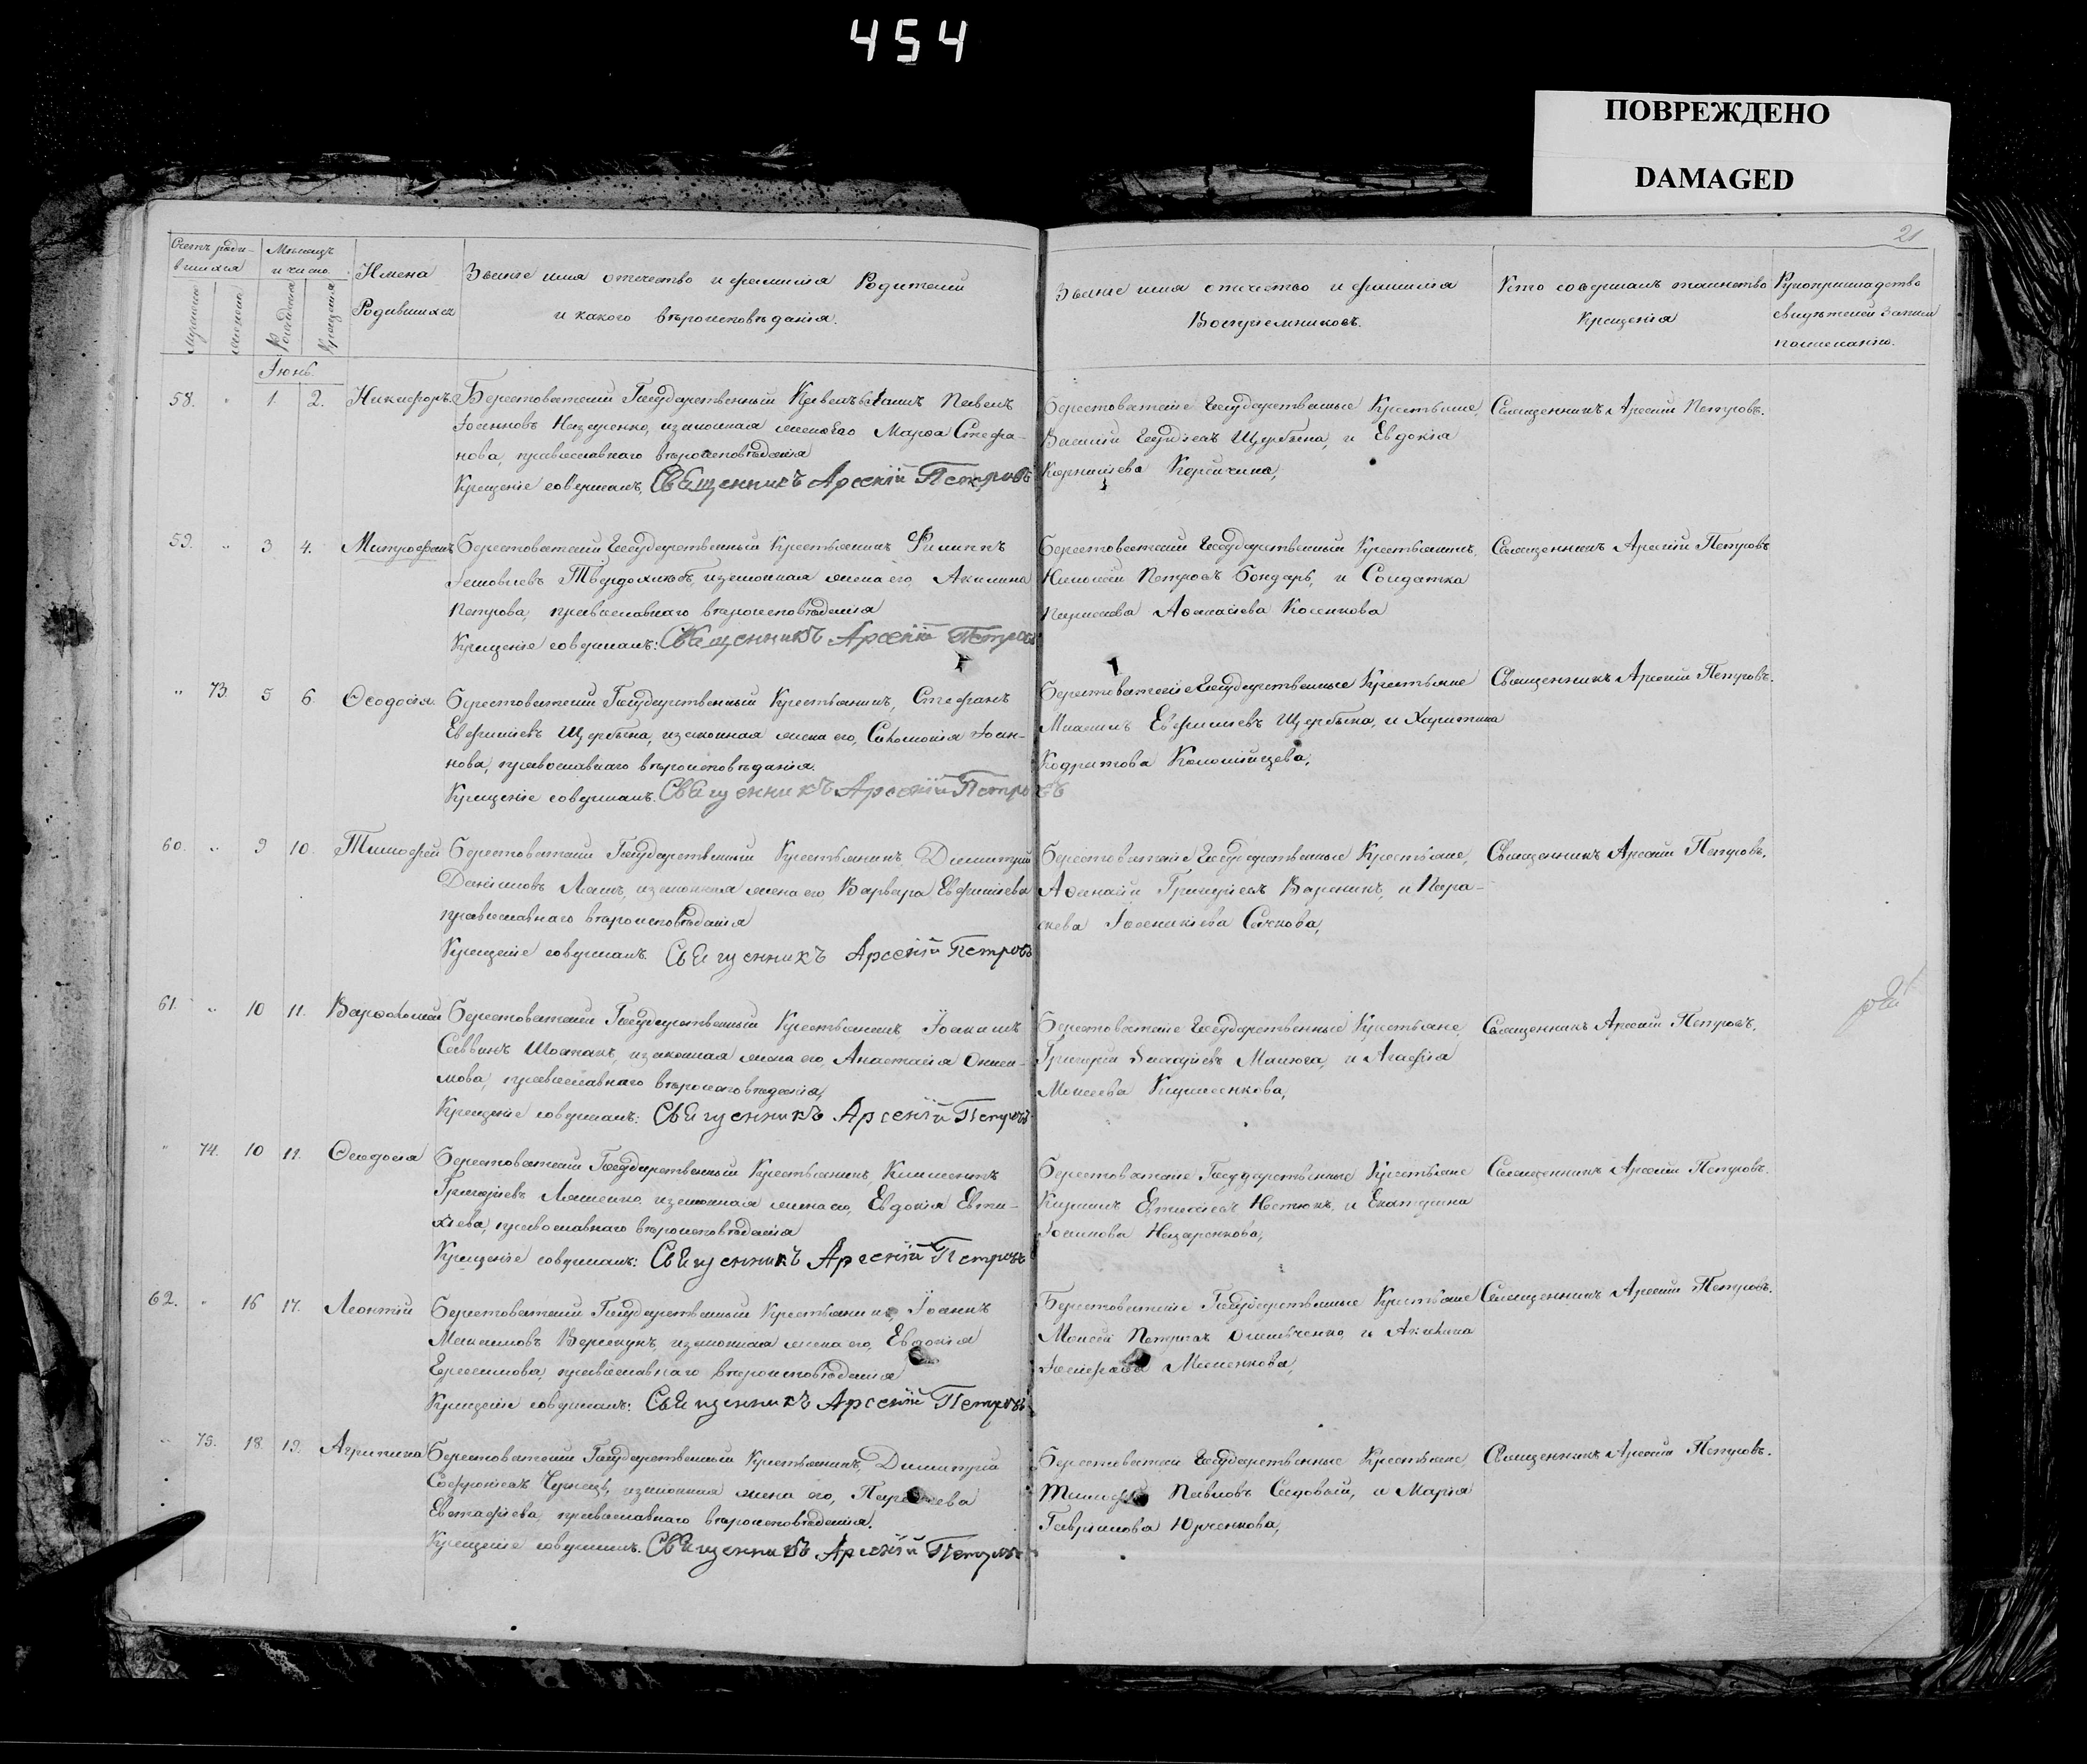 454
ПОВРЕЖДЕНО
DAMAGED
21
Счетъ роди-
вшихся
Мѣсяцъ
и число.
Имена
Родившихся
Званіе имя отечество и фамилія Родителей
и какого вѣроисповѣданія.
Званіе имя отечество и фамилія
Воспріемниковъ.
Кто совершалъ таинство
Крещенія
Рукоприкладство
свидѣтелей записи
по желанію.
мужеска
женска
Рожденія
Крещенія
Іюнь.
58. " 1. 2. Никифоръ. Берестоватскій Государственный Павелъ
Іоанновъ Назаренко, и законная жена его Марѳа Стефа-
нова, православнаго вѣроисповѣданія
Крещеніе совершалъ, Священникъ Арсеній Петровъ
Берестоватскіе Государственные Крестьяне,
Василій Щербина, и Евдокія
Корнилова
Священникъ Арсеній Петровъ.
59. " 3 4. Митрофанъ Берестоватскій Государственный Крестьянинъ Филиппъ
Твердохлѣбъ, и законная жена его, Акилина
Петрова, православнаго вѣроисповѣданія
Крещеніе совершалъ: Священникъ Арсеній Петровъ
Берестоватскій Государственный Крестьянинъ,
Петровъ Бондарь, и Солдатка
Аѳанасіева
Священникъ Арсеній Петровъ
" 73. 5 6. Ѳеодосія Берестоватскій Государственный Крестьянинъ, Стефанъ
Евфиміевъ Щербина, и законная жена его, Соломонія Іоан-
нова, православнаго вѣроисповѣданія.
Крещеніе совершалъ. Священникъ Арсеній Петровъ
Берестоватскіе Государственные Крестьяне
Михаилъ Евфиміевъ Щербина, и Харитина
Кодратова Коломійцева,
Священникъ Арсеній Петровъ.
60. " 9 10. Тимофей Берестоватскій Государственный Крестьянинъ, Димитрій
Даніиловъ и законная жена его Варвара Евфиміева
православнаго вѣроисповѣданія
Крещеніе совершалъ. Священникъ Арсеній Петровъ
Берестоватскіе Государственные Крестьяне,
Аѳанасій Григоріевъ Вареникъ, и Пара-
скева
Священникъ Арсеній Петровъ.
61. " 10 11. Варѳоломей Берестоватскій Государственный Крестьянинъ Іоакимъ
Саввинъ Шостакъ, и законная жена его, Анастасія Ониси-
мова, православнаго вѣроисповѣданія,
Крещеніе совершалъ: Священникъ Арсеній Петровъ
Берестоватскіе Государственные Крестьяне,
Григорій и Агафія
Моисеева
Священникъ Арсеній Петровъ.
" 74. 10 11. Ѳеодосія Берестоватскій Государственный Крестьянинъ, Климентъ
Григоріевъ и законная жена его, Евдокія Евти-
хіева, православнаго вѣроисповѣданія
Крещеніе совершалъ: Священникъ Арсеній Петровъ
Берестоватскіе Государственные Крестьяне
Кириллъ и Екатерина
Іоаннова Назаренкова,
Священникъ Арсеній Петровъ.
62. " 16 17. Леонтій Берестоватскій Государственный Крестьянинъ, Іоаннъ
Максимовъ и законная жена его, Евдокія
православнаго вѣроисповѣданія
Крещеніе совершалъ: Священникъ Арсеній Петровъ
Берестоватскіе Государственные Крестьяне
Моисей Петровъ и Акилина
Священникъ Арсеній Петровъ.
" 75. 18. 19. Агрипина Берестоватскій Государственный Крестьянинъ, Димитрій
Софроніевъ и законная жена его, Параскева
Евстафіева, православнаго вѣроисповѣданія.
Крещеніе совершалъ. Священникъ Арсеній Петровъ
Берестоватскіе Государственные Крестьяне,
Тимофей Павловъ Садовый, и Марія
Гавріилова Юрченкова,
Священникъ Арсеній Петровъ.